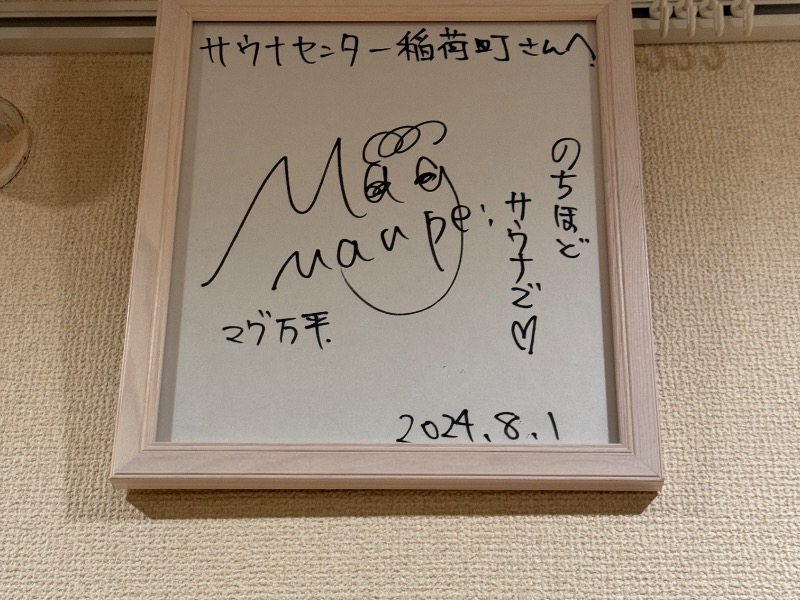 サウナセンター稲荷町さんへ!
のちほど
サウナで♡
Mag
manpei
マグ万平
2024.8.1